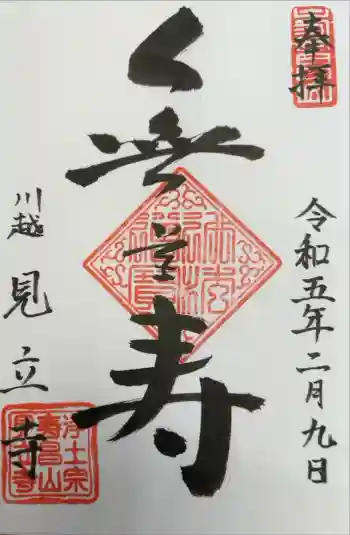 奉拝
令和五年二月九日
無量寿
川越
見立寺
浄土宗
寿昌山
見立寺